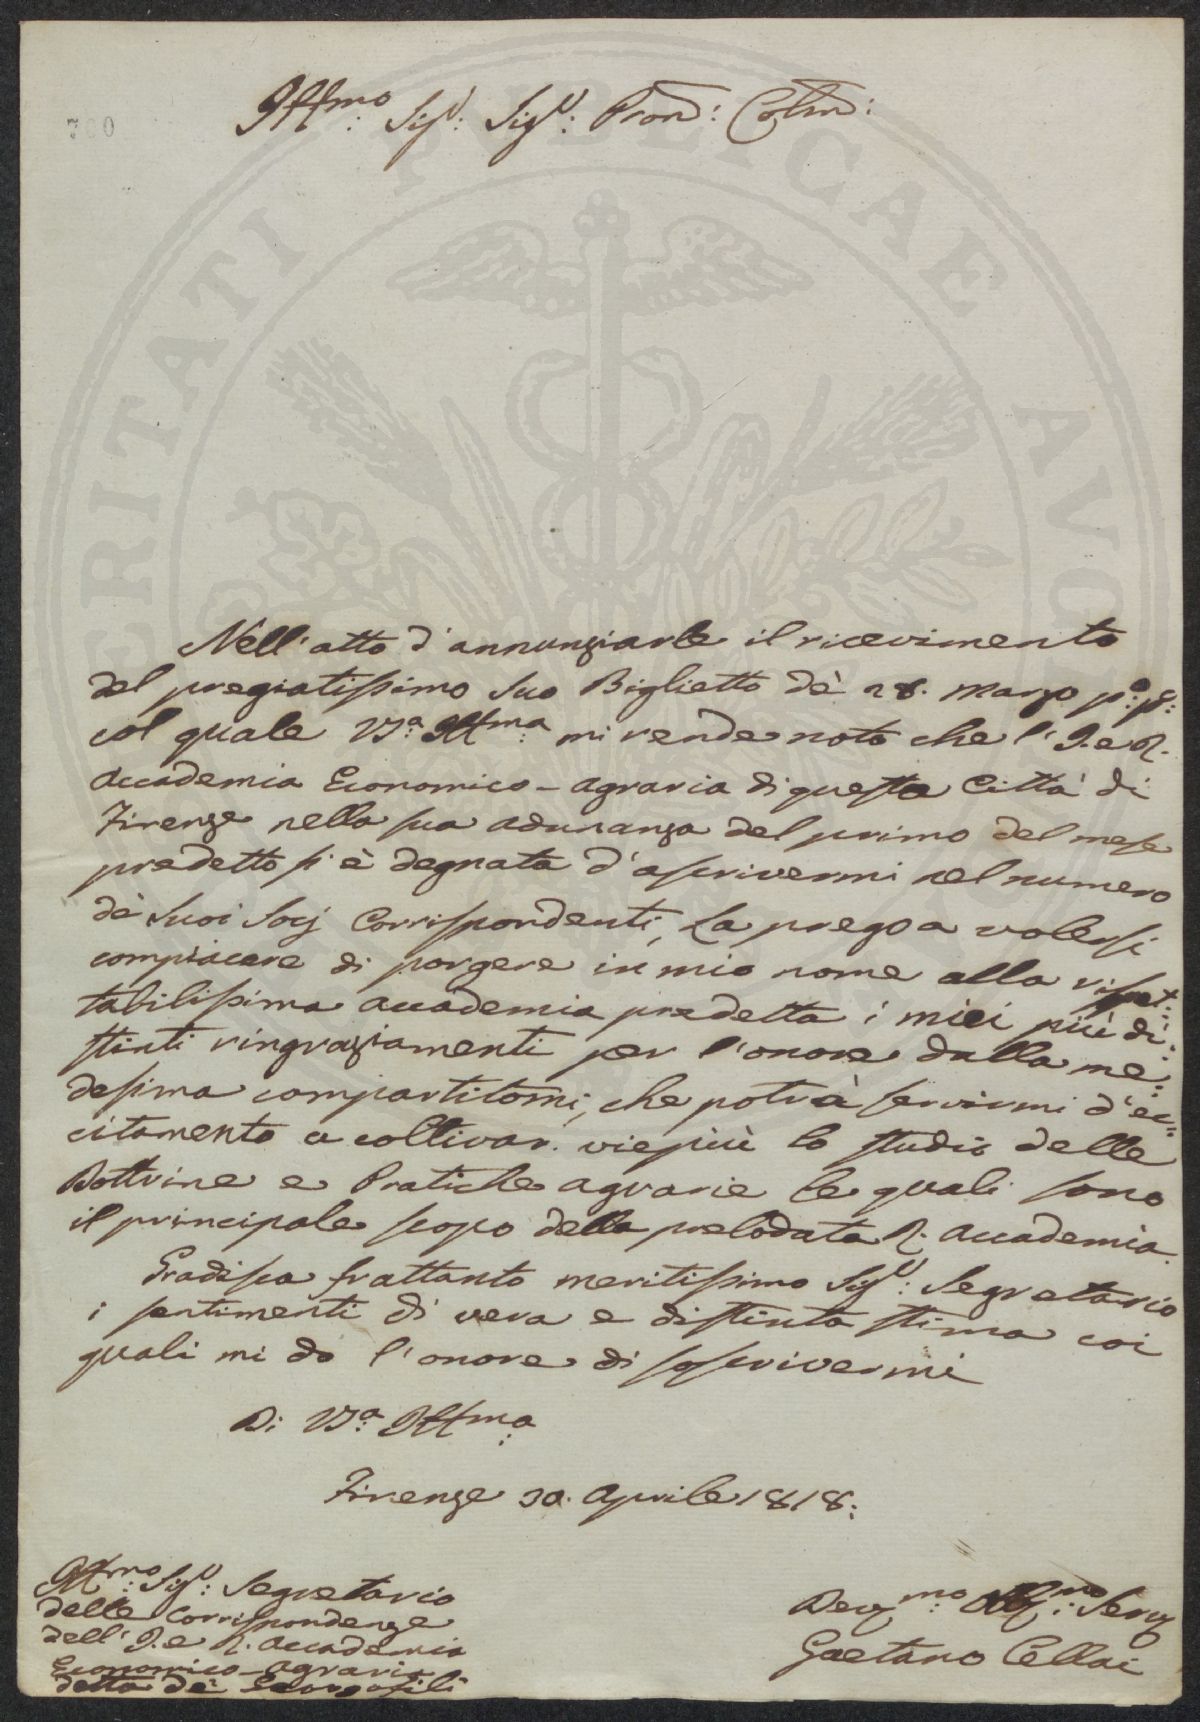 700
Illmo: Sigr: Sigr: Pron: Colmo:
Nell'atto d'annunziarle il ricevimento
del pregiatissimo suo Biglietto de' 28. Marzo p.o p.o:
col quale V.S.a Illma: mi rende noto che l'I. e R.
Accademia Economico-agraria di questa Città di
Firenze nella sua adunanza del primo del mese
predetto s'è degnata d'ascrivermi nel numero
de' suoi Socj Corrispondenti, La prego a volersi
compiacere di porgere in mio nome alla rispet:
tabilissima accademia predetta i miei più di:
stinti ringraziamenti per l'onore dalla me:
desima compartitomi, che potrà servirmi d'ec:
citamento a coltivar. viepiù lo studio delle
Dottrine e Pratiche agrarie le quali sono
il principale scopo della prelodata R. accademia.
Gradisca frattanto meritissimo Sigr: Segretario
i sentimenti di vera e distinta stima coi
quali mi do l'onore di soscrivermi
Di V.S.a Illma:
Firenze 30. Aprile 1818:
Illmo: Sigr: Segretario
delle Corrispondenze
dell'I. e R. accademia
Economico-agraria
detta de' Georgofili
Devmo: Obbmo: Serv
Gaetano Cellai
PUBLICAE